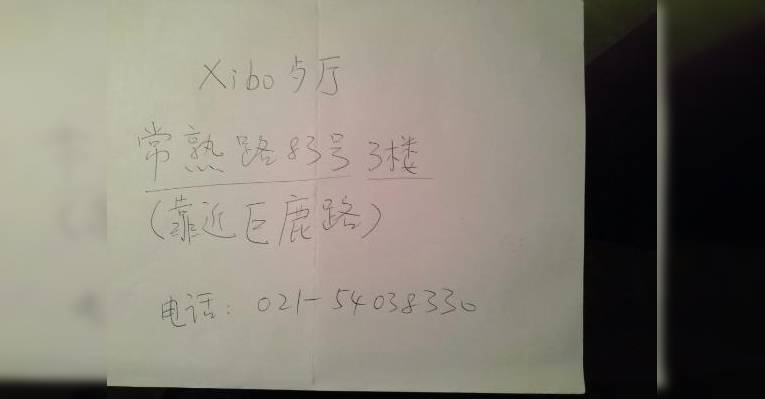 Xibo 歺厅
常熟路83号 3楼
(靠近巨鹿路)
电话: 021-54038330